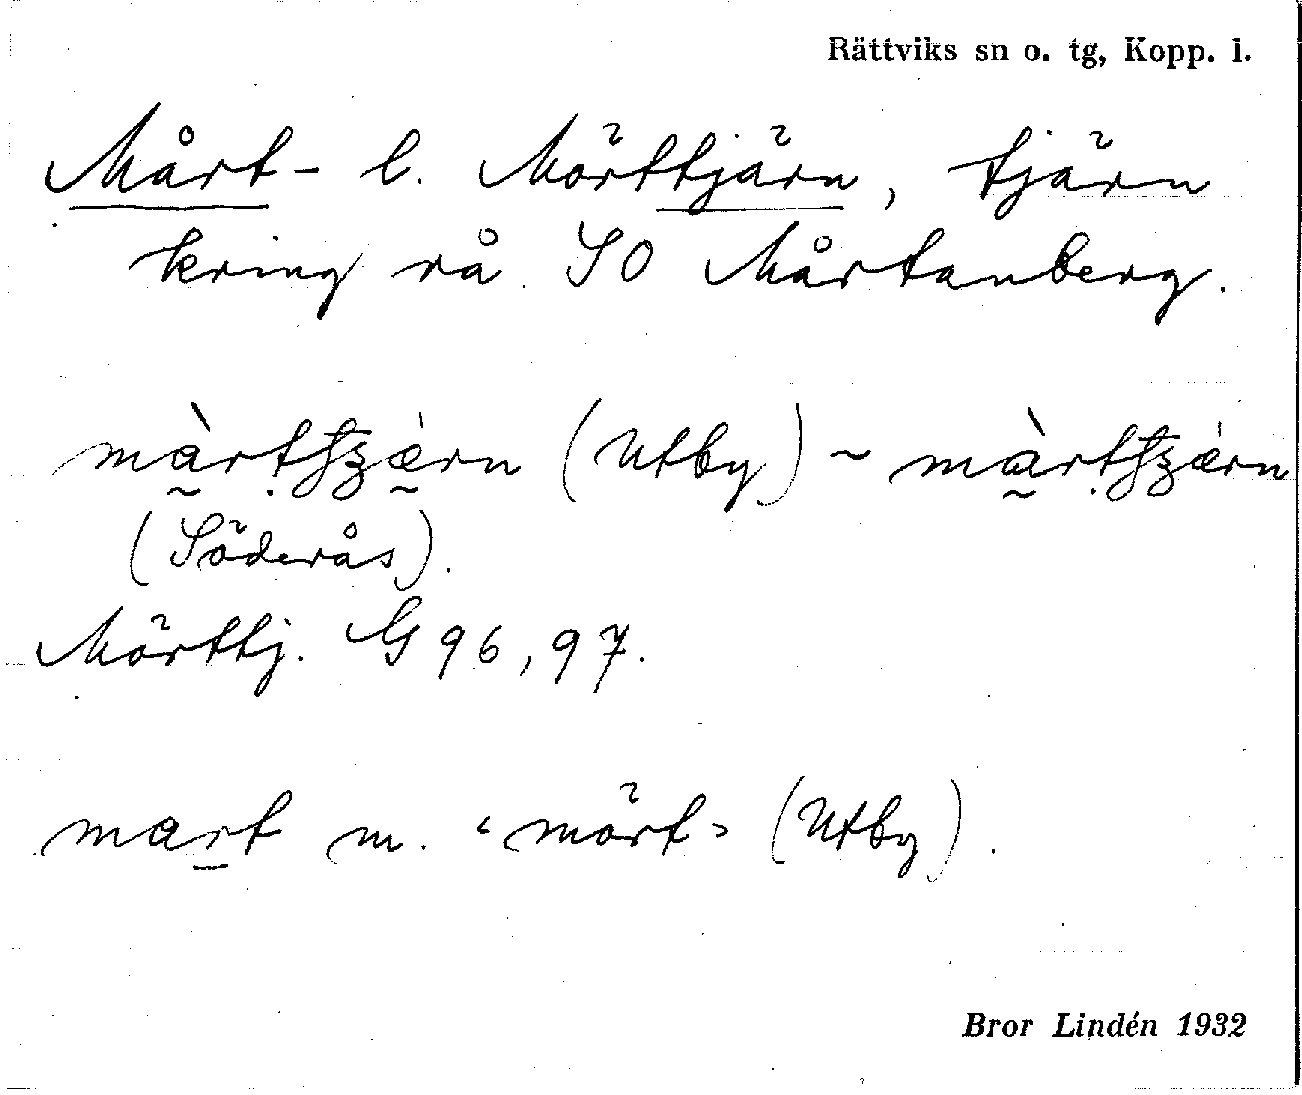 Rättviks sn o. tg, Kopp. l.
Mårt- l. Mörttjärn, tjärn
kring rå SO Mårtanberg.
(Utby) ~
(Söderås).
Mörttj. G 96, 97.
mart m. ‹mört› (Utby).
Bror Lindén 1932